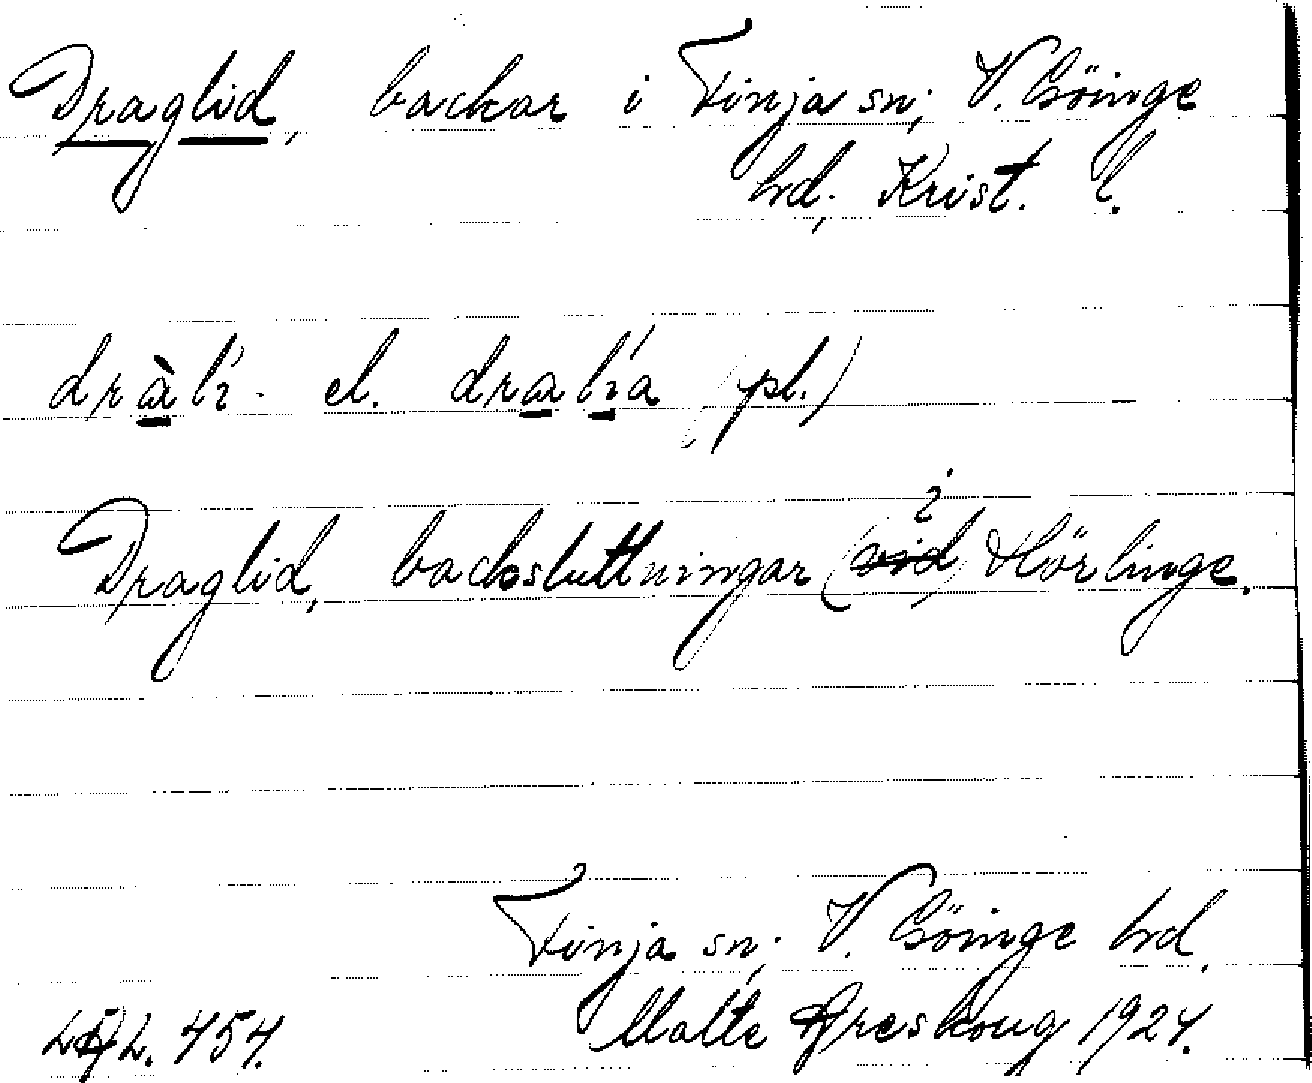 Draglid, backar i Finja sn; V. Göinge
hd; Krist. l.
dràlí- el. dralía (pl.)
i
Draglid, backsluttningar (vid) Hörlinge.
Finja sn; V. Göinge hd,
LAL. 454. Malte Areskoug 1924.